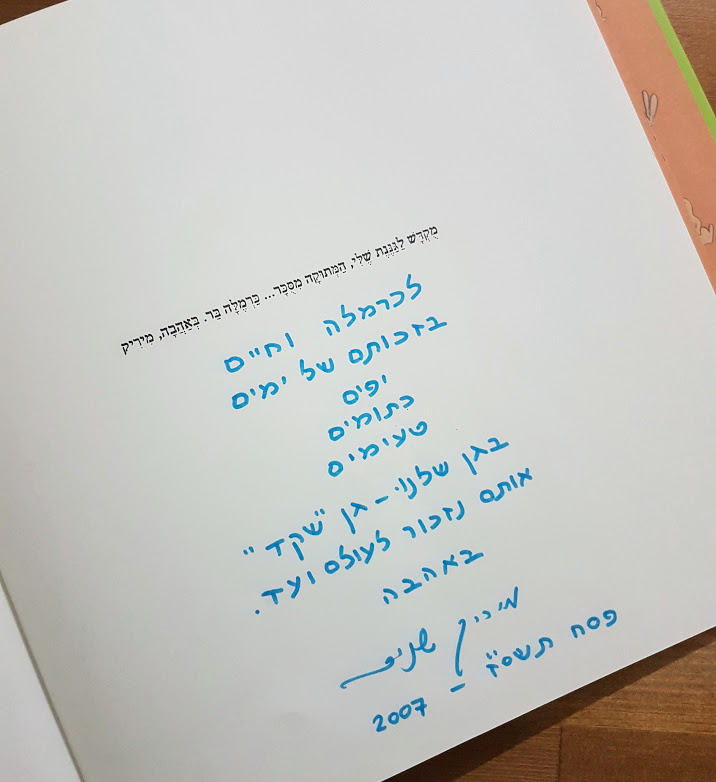 מֻקְדָּשׁ לַגַּנֶּנֶת שֶׁלִּי, הַמְּתוּקָה מִסֻּכָּר... כַּרְמֶלָה בַּר. בְּאַהֲבָה, מִירִיק
לכרמלה וחיים
בזכותם של ימים
יפים
כתומים
טעימים
בגן שלנו - גן "שקד"
אותם נזכור לעולם ועד.
באהבה
מיריק שניר
פסח תשס"ז - 2007